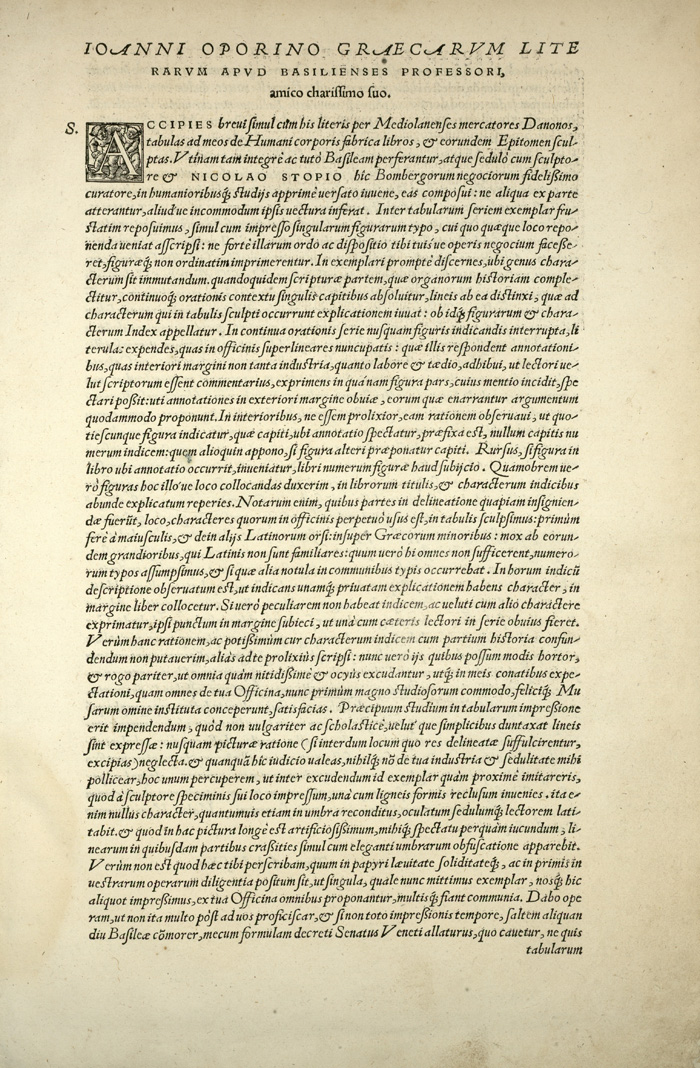 IOANNI OPORINO GRAECARVM LITE
RARVM APVD BASILIENSES PROFESSORI,
amico charißimo suo.
S. ACCIPIES breui simul cũm his literis per Mediolanenses mercatores Danonos,
tabulas ad meos de Humani corporis fabrica libros, & eorundem Epitomen scul-
ptas. Vtinam tam integrè ac tutò Basileam perferantur, atque sedulò cum sculpto-
re & NICOLAO STOPIO hic Bombergorum negociorum fidelißimo
curatore, in humanioribusq́; studijs apprimè uersato iuuene, eas composui: ne aliqua ex parte
atterantur, aliud'ue incommodum ipsis uectura inferat. Inter tabularum seriem exemplar fru-
statim reposuimus, simul cum impresso singularum figurarum typo, cui quo quæque loco repo-
nenda ueniat ascripsi: ne fortè illarum ordo ac dispositio tibi tuis'ue operis negocium faceße-
ret, figuræq́; non ordinatim imprimerentur. In exemplari promptè discernes, ubi genus chara-
cterum sit immutandum. quandoquidem scripturæ partem, quæ organorum historiam comple-
ctitur, continuoq́; orationis contextu singulis capitibus absoluitur, lineis ab ea distinxi, quæ ad
characterum qui in tabulis sculpti occurrunt explicationem iuuat: ob idq́; figurarum & chara-
cterum Index appellatur. In continua orationis serie nusquam figuris indicandis interrupta, li
terulas expendes, quas in officinis superlineares nuncupatis: quæ illis respondent annotationi-
bus, quas interiori margini non tanta industria, quanto labore & tædio, adhibui, ut lectori ue-
lut scriptorum essent commentarius, exprimens in qua'nam figura pars, cuius mentio incidit, spe
ctari poßit: uti annotationes in exteriori margine obuiæ, eorum quæ enarrantur argumentum
quodammodo proponunt. In interioribus, ne essem prolixior, eam rationem obseruaui, ut quo-
tiescunque figura indicatur, quæ capiti, ubi annotatio spectatur, præfixa est, nullum capitis nu
merum indicem: quem alioquin appono, si figura alteri præponatur capiti. Rursus, si figura in
libro ubi annotatio occurrit, inueniatur, libri numerum figuræ haud subijcio. Quamobrem ue-
rò figuras hoc illo'ue loco collocandas duxerim, in librorum titulis, & characterum indicibus
abunde explicatum reperies. Notarum enim, quibus partes in delineatione quapiam insignien-
dæ fuerũt, loco, characteres quorum in officinis perpetuò usus est, in tabulis sculpsimus: primùm
ferè à maiusculis, & dein alijs Latinorum orsi: insuper Græcorum minoribus: mox ab eorun-
dem grandioribus, qui Latinis non sunt familiares: quum uerò hi omnes non sufficerent, numero-
rum typos assumpsimus, & si quæ alia notula in communibus typis occurrebat. In horum indicũ
descriptione obseruatum est, ut indicans unamq́; priuatam explicationem habens character, in
margine liber collocetur. Si uerò peculiarem non habeat indicem, ac ueluti cum alio charactere
exprimatur, ipsi punctum in margine subieci, ut unà cum cæteris lectori in serie obuius fieret.
Verùm hanc rationem, ac potißimùm cur characterum indicem cum partium historia confun-
dendum non putauerim, aliàs ad te prolixius scripsi: nunc uerò ijs quibus possum modis hortor,
& rogo pariter, ut omnia quàm nitidißimè & ocyus excudantur, utq́; in meis conatibus expe-
ctationi, quam omnes de tua Officina, nunc primùm magno studiosorum commodo, feliciq́; Mu
sarum omine instituta conceperunt, satisfacias. Præcipuum studium in tabularum impreßione
erit impendendum, quòd non uulgariter ac scholasticè, uelut'que simplicibus duntaxat lineis
sint expressæ: nusquam picturæ ratione (si interdum locum quo res delineatæ suffulcirentur,
excipias) neglecta. & quanquã hic iudicio ualeas, nihilq́; nõ de tua industria & sedulitate mihi
pollicear, hoc unum percuperem, ut inter excudendum id exemplar quàm proximè imitareris,
quod à sculptore speciminis sui loco impressum, unà cum ligneis formis reclusum inuenies. ita e-
nim nullus character, quantumuis etiam in umbra reconditus, oculatum sedulumq́; lectorem lati-
tabit. & quod in hac pictura longè est artificiosißimum, mihiq́; spectatu perquàm iucundum, li-
nearum in quibusdam partibus craßities simul cum eleganti umbrarum obfuscatione apparebit.
Verùm non est quod hæc tibi perscribam, quum in papyri læuitate soliditateq́;, ac in primis in
uestrarum operarum diligentia positum sit, ut singula, quale nunc mittimus exemplar, nosq́; hic
aliquot impreßimus, ex tua Officina omnibus proponantur, multisq́; fiant communia. Dabo ope
ram, ut non ita multo pòst ad uos proficiscar, & si non toto impreßionis tempore, saltem aliquan
diu Basileæ cõmorer, mecum formulam decreti Senatus Veneti allaturus, quo cauetur, ne quis
tabularum